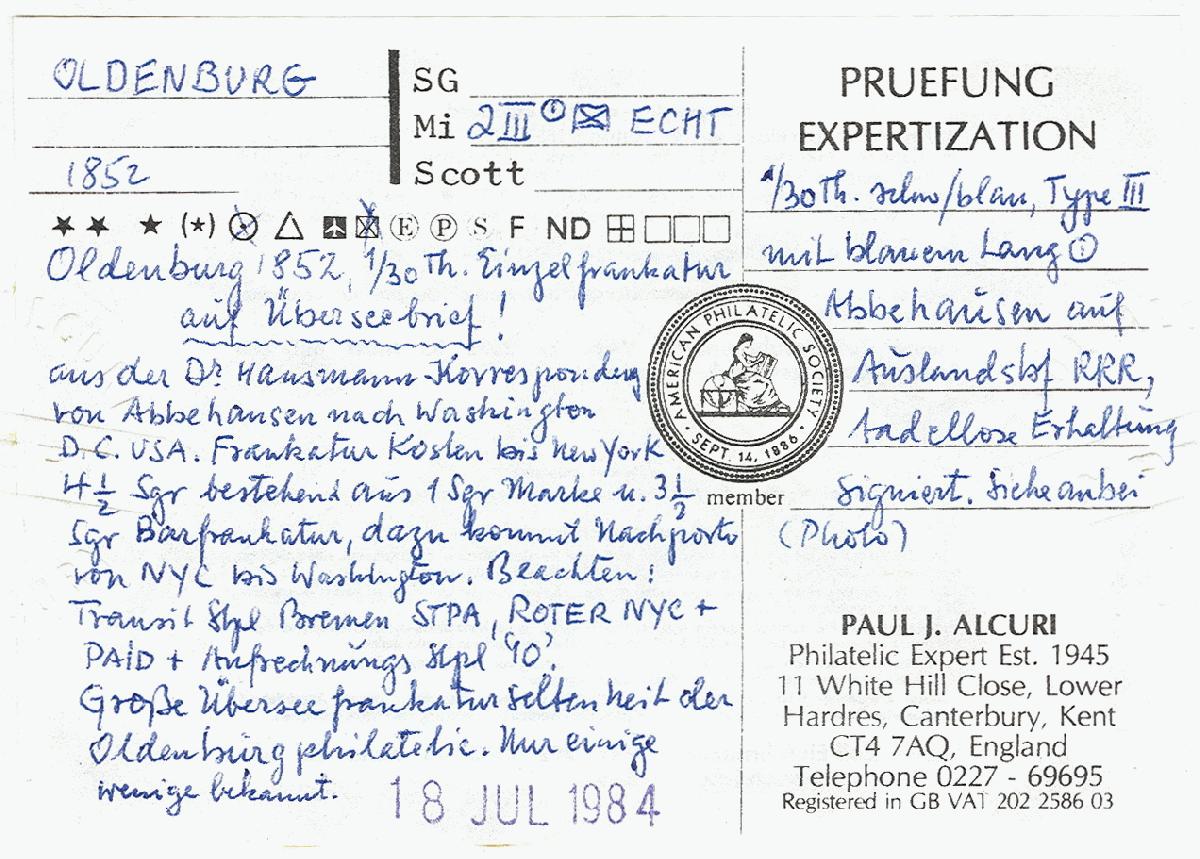 OLDENBURG
1852
SG
Mi 2III ECHT
Scott
(*) E P S F ND
Oldenburg 1852, 1/30 Th. Einzelfrankatur
auf Überseebrief!
aus der Dr Hausmann-Korrespondenz
von Abbehausen nach Washington
D.C. USA. Frankatur Kosten bis New York
4 1/2 Sgr bestehend aus 1 Sgr Marke u. 3 1/2
Sgr Barfrankatur, dazu kommt Nachporto
von NYC bis Washington. Beachten!
Transit Stpl Bremen STPA, ROTER NYC +
PAID + Aufrechnungs Stpl '40'.
Große Überseefrankaturseltenheit der
Oldenburgphilatelie. Nur einige
wenige bekannt.
18 JUL 1984
PRUEFUNG
EXPERTIZATION
1/30 Th. schw/blau, Type III
mit blauem Lang
Abbehausen auf
Auslandsbf RRR,
tadellose Erhaltung
Signiert. Siehe anbei
(Photo)
AMERICAN PHILATELIC SOCIETY
SEPT. 14, 1886
member
PAUL J. ALCURI
Philatelic Expert Est. 1945
11 White Hill Close, Lower
Hardres, Canterbury, Kent
CT4 7AQ, England
Telephone 0227 - 69695
Registered in GB VAT 202 2586 03